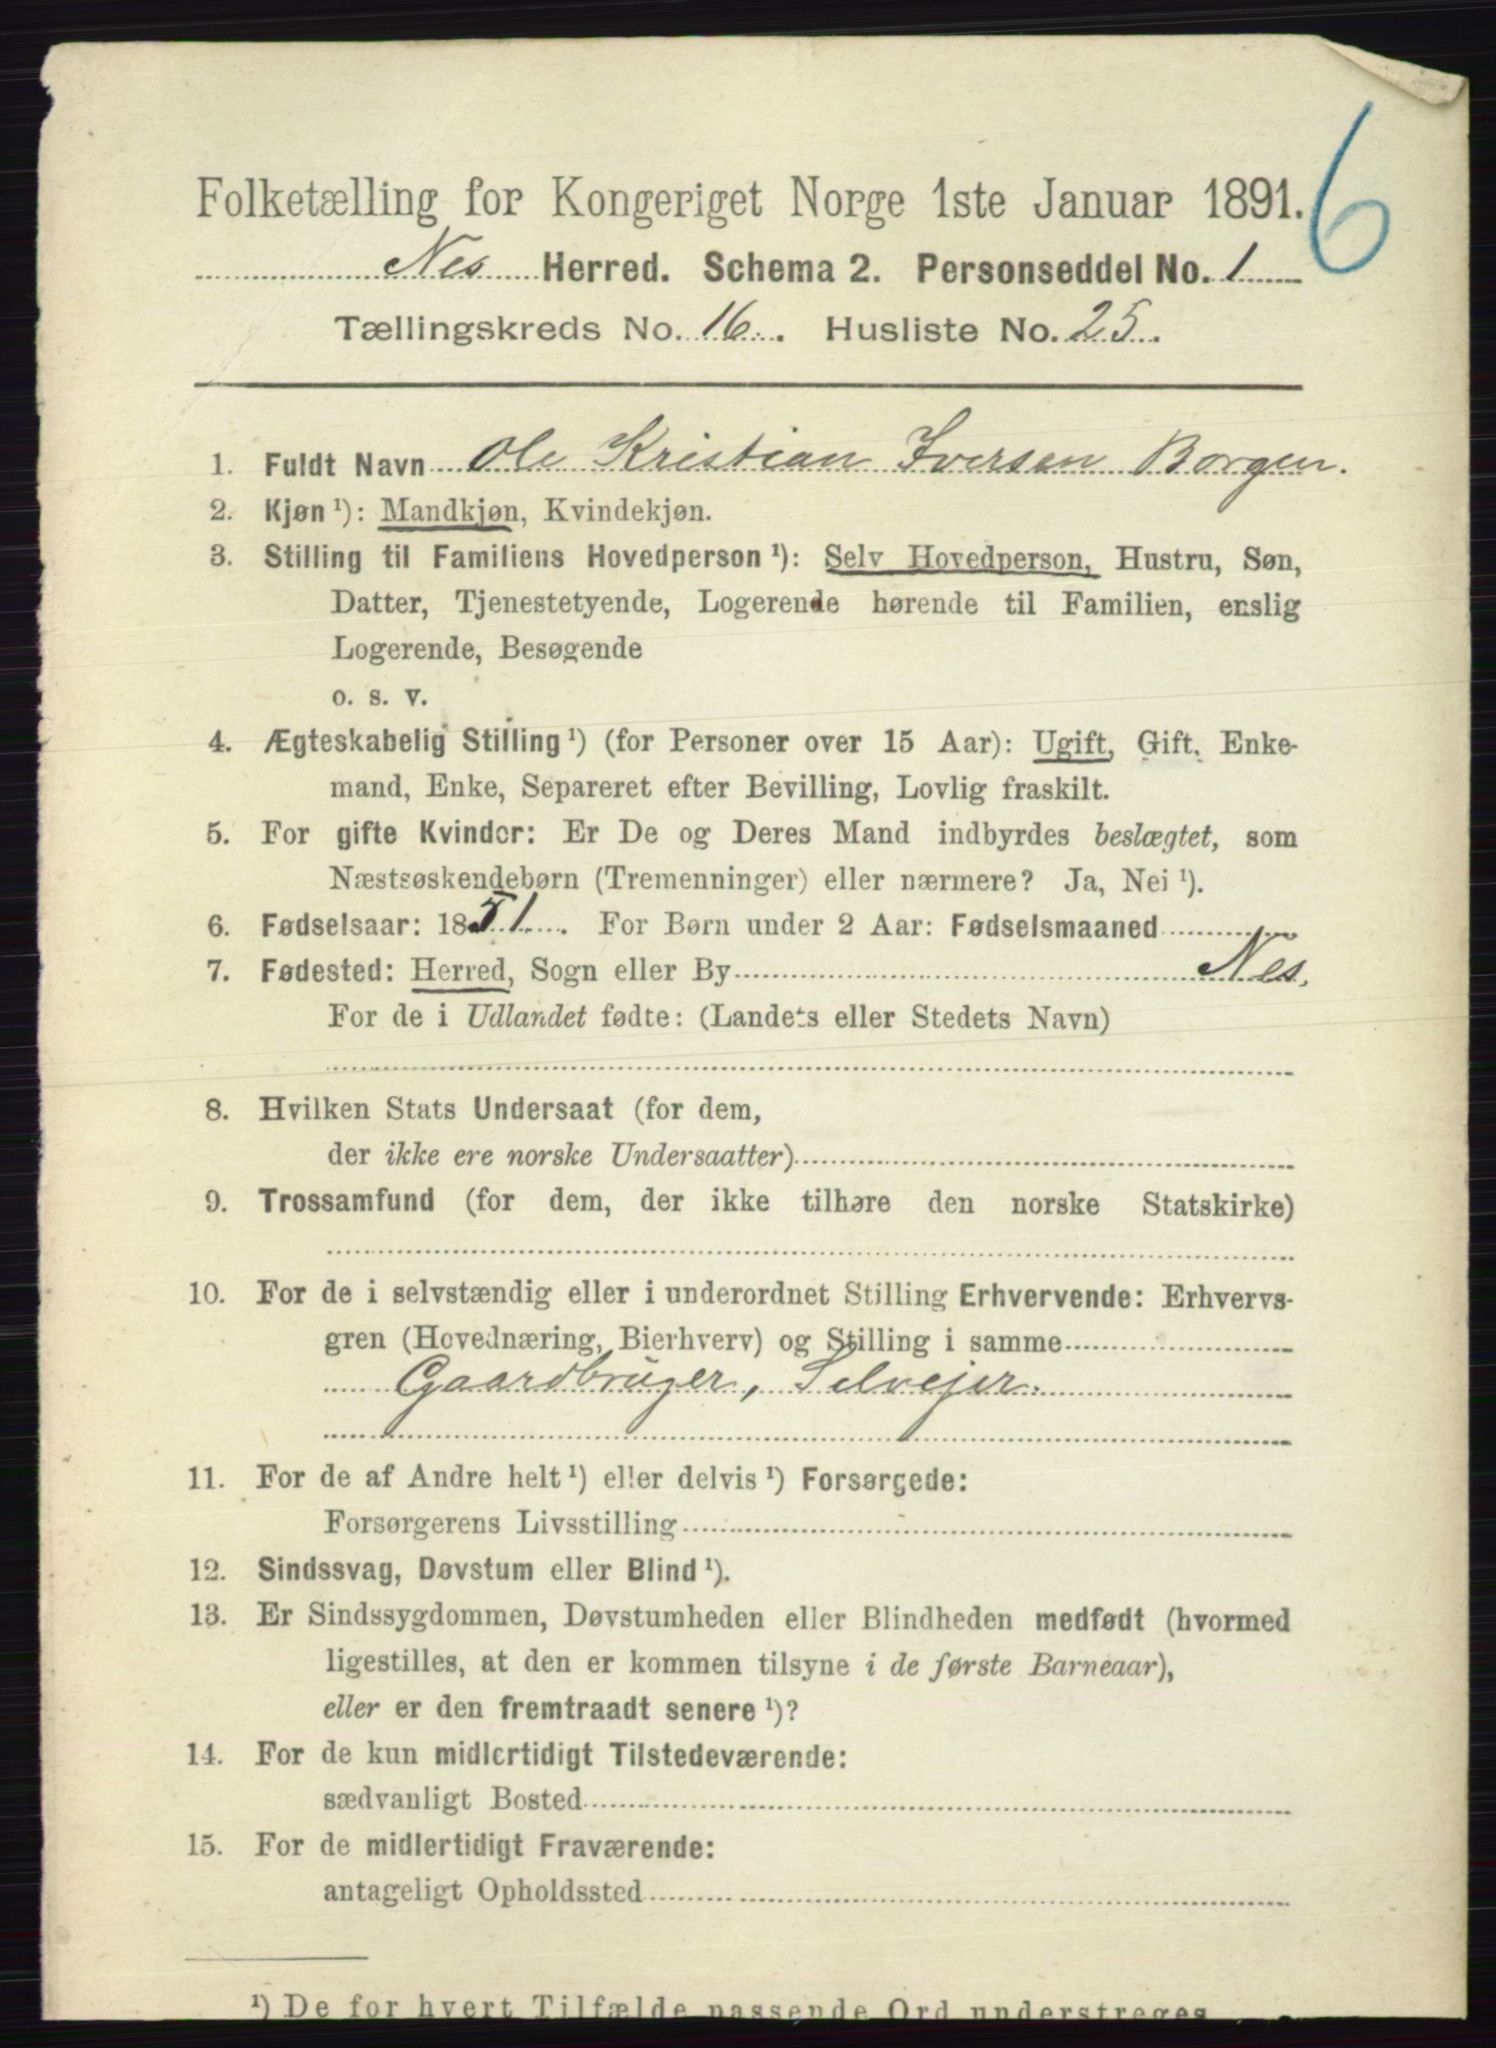 6
Folketælling for Kongeriget Norge 1ste Januar 1891.
Nes Herred. Schema 2. Personseddel No. 1
Tællingskreds No. 16. Husliste No. 25.
1. Fuldt Navn Ole Kristian Iversen Borgen.
2. Kjøn ¹): Mandkjøn, Kvindekjøn.
3. Stilling til Familiens Hovedperson ¹): Selv Hovedperson, Hustru, Søn,
Datter, Tjenestetyende, Logerende hørende til Familien, enslig
Logerende, Besøgende
o. s. v.
4. Ægteskabelig Stilling ¹) (for Personer over 15 Aar): Ugift, Gift, Enke-
mand, Enke, Separeret efter Bevilling, Lovlig fraskilt.
5. For gifte Kvinder: Er De og Deres Mand indbyrdes beslægtet, som
Næstsøskendebørn (Tremenninger) eller nærmere? Ja, Nei ¹).
6. Fødselsaar: 1851. For Børn under 2 Aar: Fødselsmaaned
7. Fødested: Herred, Sogn eller By Nes.
For de i Udlandet fødte: (Landets eller Stedets Navn)
8. Hvilken Stats Undersaat (for dem,
der ikke ere norske Undersaatter)
9. Trossamfund (for dem, der ikke tilhøre den norske Statskirke)
10. For de i selvstændig eller i underordnet Stilling Erhvervende: Erhvervs-
gren (Hovednæring, Bierhverv) og Stilling i samme
Gaardbruger, Selvejer.
11. For de af Andre helt ¹) eller delvis ¹) Forsørgede:
Forsørgerens Livsstilling
12. Sindssvag, Døvstum eller Blind ¹).
13. Er Sindssygdommen, Døvstumheden eller Blindheden medfødt (hvormed
ligestilles, at den er kommen tilsyne i de første Barneaar),
eller er den fremtraadt senere ¹)?
14. For de kun midlertidigt Tilstedeværende:
sædvanligt Bosted
15. For de midlertidigt Fraværende:
antageligt Opholdssted
¹) De for hvert Tilfælde passende Ord understreges